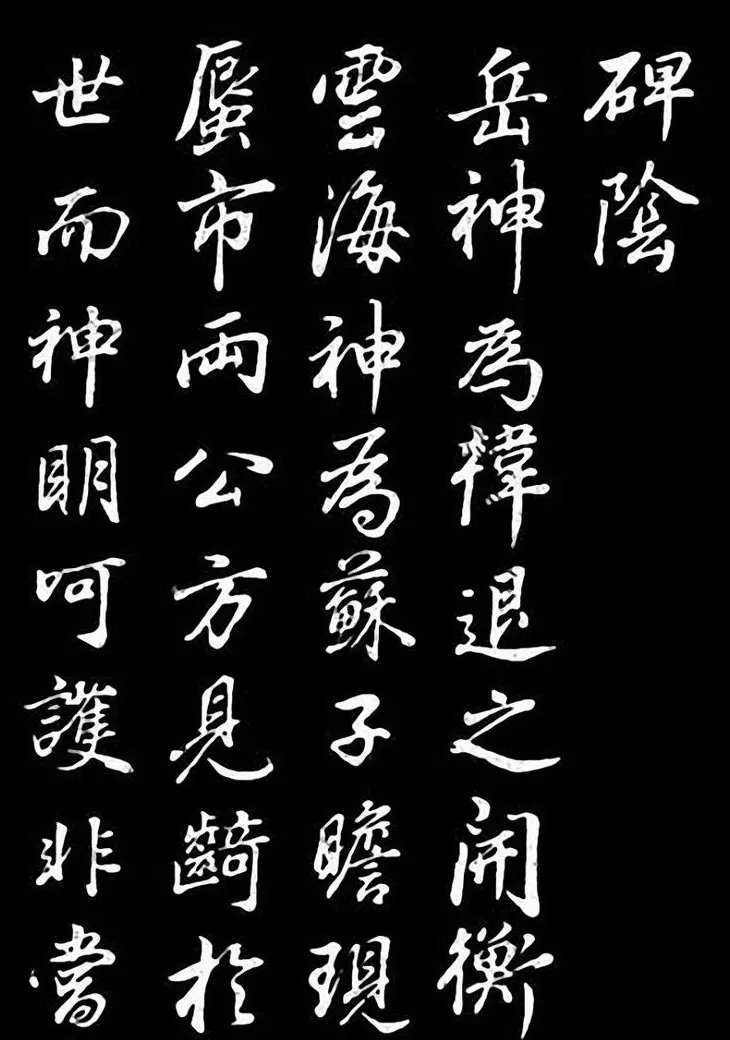 碑陰
岳神為韓退之開衡
雲海神為蘇子瞻現
蜃市兩公方見齮於
世而神明呵護非當